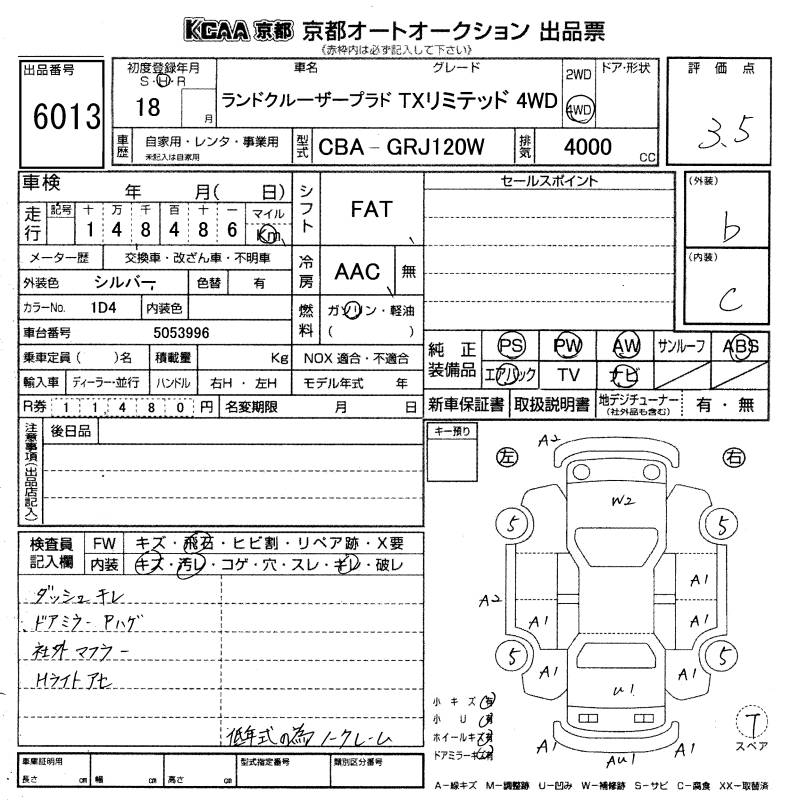 KCAA 京都 京都オートオークション 出品票
《赤枠内は必ず記入して下さい》
出品番号
6013
初度登録年月
S・H・R
18 月
車名 グレード
ランドクルーザープラド TXリミテッド 4WD
2WD
4WD
ドア・形状
車歴
自家用・レンタ・事業用
未記入は自家用
型式
CBA-GRJ120W
排気
4000 CC
評価点
3.5
車検 年 月( 日)
走行
記号 十 万 千 百 十 一
1 4 8 4 8 6
マイル
Km
メーター歴 交換車・改ざん車・不明車
外装色 シルバー 色替 有
カラーNo. 1D4 内装色
車台番号 5053996
乗車定員( )名 積載量 Kg NOX 適合・不適合
輸入車 ディーラー・並行 ハンドル 右H・左H モデル年式 年
R券 1 1 4 8 0 円 名変期限 月 日
シフト
FAT
冷房
AAC 無
燃料
ガソリン・軽油
( )
セールスポイント
(外装)
b
(内装)
c
純正装備品
PS PW AW サンルーフ ABS
エアバック TV ナビ
新車保証書 取扱説明書 地デジチューナー
(社外品も含む)
有・無
注意事項(出品店記入)
後日品
キー預り
左
右
検査員記入欄
FW キズ・飛石・ヒビ割・リペア跡・X要
内装 キズ・汚レ・コゲ・穴・スレ・キレ・破レ
ダッシュキレ
ドアミラー Pハゲ
社外マフラー
Hライトアセ
低年式の為ノークレーム
A2
W2
5
5
A1
A2
A1
A1
5
5
A1
A1
A1
U1
A1
AU1
A1
小キズ 有
小U 有
ホイールキズ 有
ドアミラーキズ 有
T
スペア
A-線キズ M-調整跡 U-凹み W-補修跡 S-サビ C-腐食 XX-取替済
車庫証明用
長さ cm 幅 cm 高さ cm
型式指定番号
類別区分番号